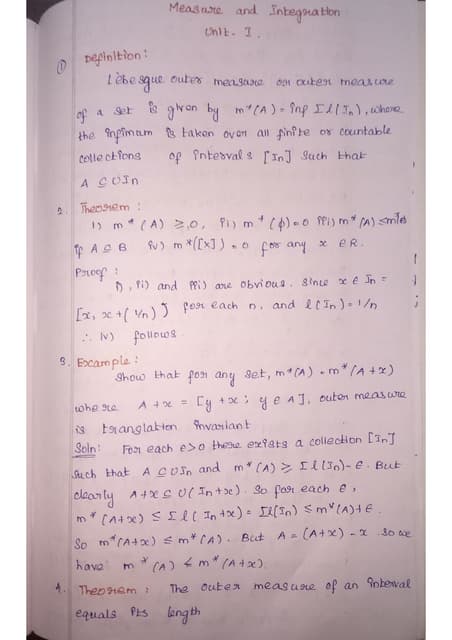 Measure and Integration
Unit - I.
① Definition :
Lebesgue outer measure or outer measure
of a set is given by m*(A) = inf Σl(In), where
the infimum is taken over all finite or countable
collections of intervals [In] such that
A ⊆ ∪In
2. Theorem :
i) m*(A) ≥ 0, ii) m*(ϕ) = 0 iii) m*(A) ≤ m*(B)
if A ⊆ B iv) m*([x]) = 0 for any x ∈ R.
Proof :
i), ii) and iii) are obvious. Since x ∈ In =
[x, x+(1/n)) for each n, and l(In) = 1/n
∴ iv) follows
3. Example :
Show that for any set, m*(A) = m*(A+x)
where A+x = [y+x; y ∈ A], outer measure
is translation invariant
Soln: For each ϵ>0 there exists a collection [In]
such that A ⊆ ∪In and m*(A) ≥ Σl(In)-ϵ. But
clearly A+x ⊆ ∪(In+x). So for each ϵ,
m*(A+x) ≤ Σl(In+x) = Σl(In) ≤ m*(A)+ϵ.
So m*(A+x) ≤ m*(A). But A = (A+x) - x so we
have m*(A) ≤ m*(A+x).
4. Theorem : The outer measure of an interval
equals its length